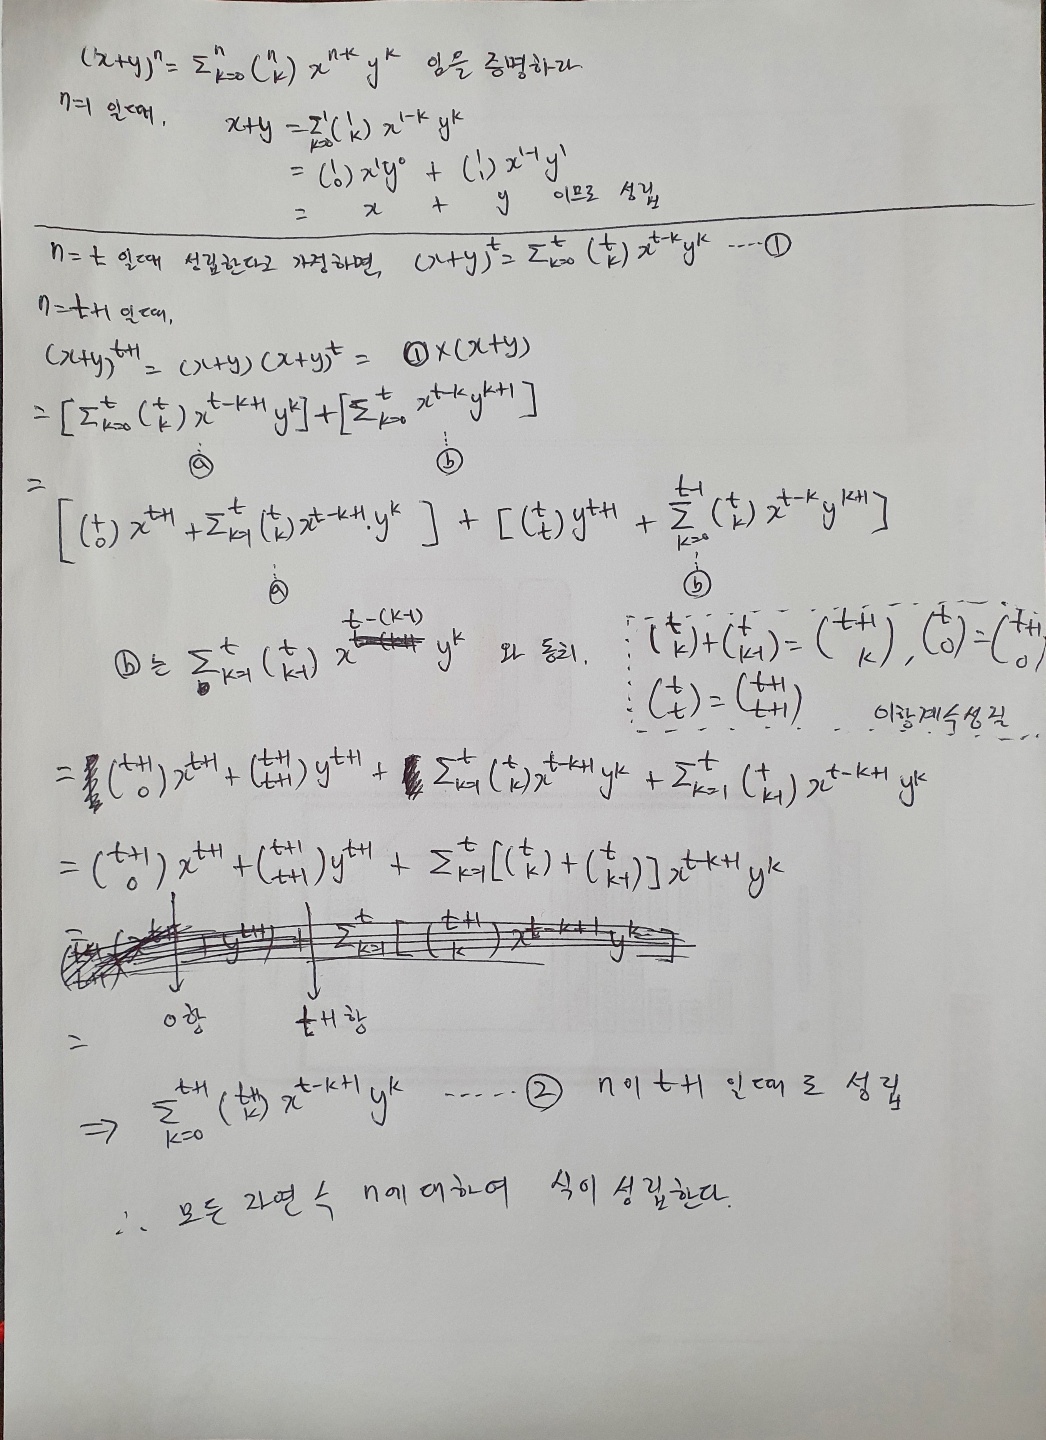 (x+y)^n = Σ_{k=0}^{n} (n k) x^{n-k} y^k 임을 증명하라
n=1 일때,
x+y = Σ_{k=0}^{1} (1 k) x^{1-k} y^k
= (1 0) x^1 y^0 + (1 1) x^{1-1} y^1
= x + y 이므로 성립
n=t 일때 성립한다고 가정하면, (x+y)^t = Σ_{k=0}^{t} (t k) x^{t-k} y^k ----①
n=t+1 일때,
(x+y)^{t+1} = (x+y)(x+y)^t = ①×(x+y)
= [Σ_{k=0}^{t} (t k) x^{t-k+1} y^k] + [Σ_{k=0}^{t} x^{t-k} y^{k+1}]
ⓐ ⓑ
=
[(t 0) x^{t+1} + Σ_{k=1}^{t} (t k) x^{t-k+1}·y^k] + [(t t) y^{t+1} + Σ_{k=0}^{t-1} (t k) x^{t-k} y^{k+1}]
ⓐ ⓑ
ⓑ는 Σ_{k=1}^{t} (t k-1) x^{t-(k-1)} y^k 와 동치.
(t k)+(t k-1)=(t+1 k), (t 0)=(t+1 0)
(t t)=(t+1 t+1) 이항계수성질
= (t+1 0) x^{t+1} + (t+1 t+1) y^{t+1} + Σ_{k=1}^{t} (t k) x^{t-k+1} y^k + Σ_{k=1}^{t} (t k-1) x^{t-k+1} y^k
= (t+1 0) x^{t+1} + (t+1 t+1) y^{t+1} + Σ_{k=1}^{t} [(t k)+(t k-1)] x^{t-k+1} y^k
0항 t+1항
=
⇒ Σ_{k=0}^{t+1} (t+1 k) x^{t-k+1} y^k -----② n이 t+1 일때로 성립
∴ 모든 자연수 n에 대하여 식이 성립한다.